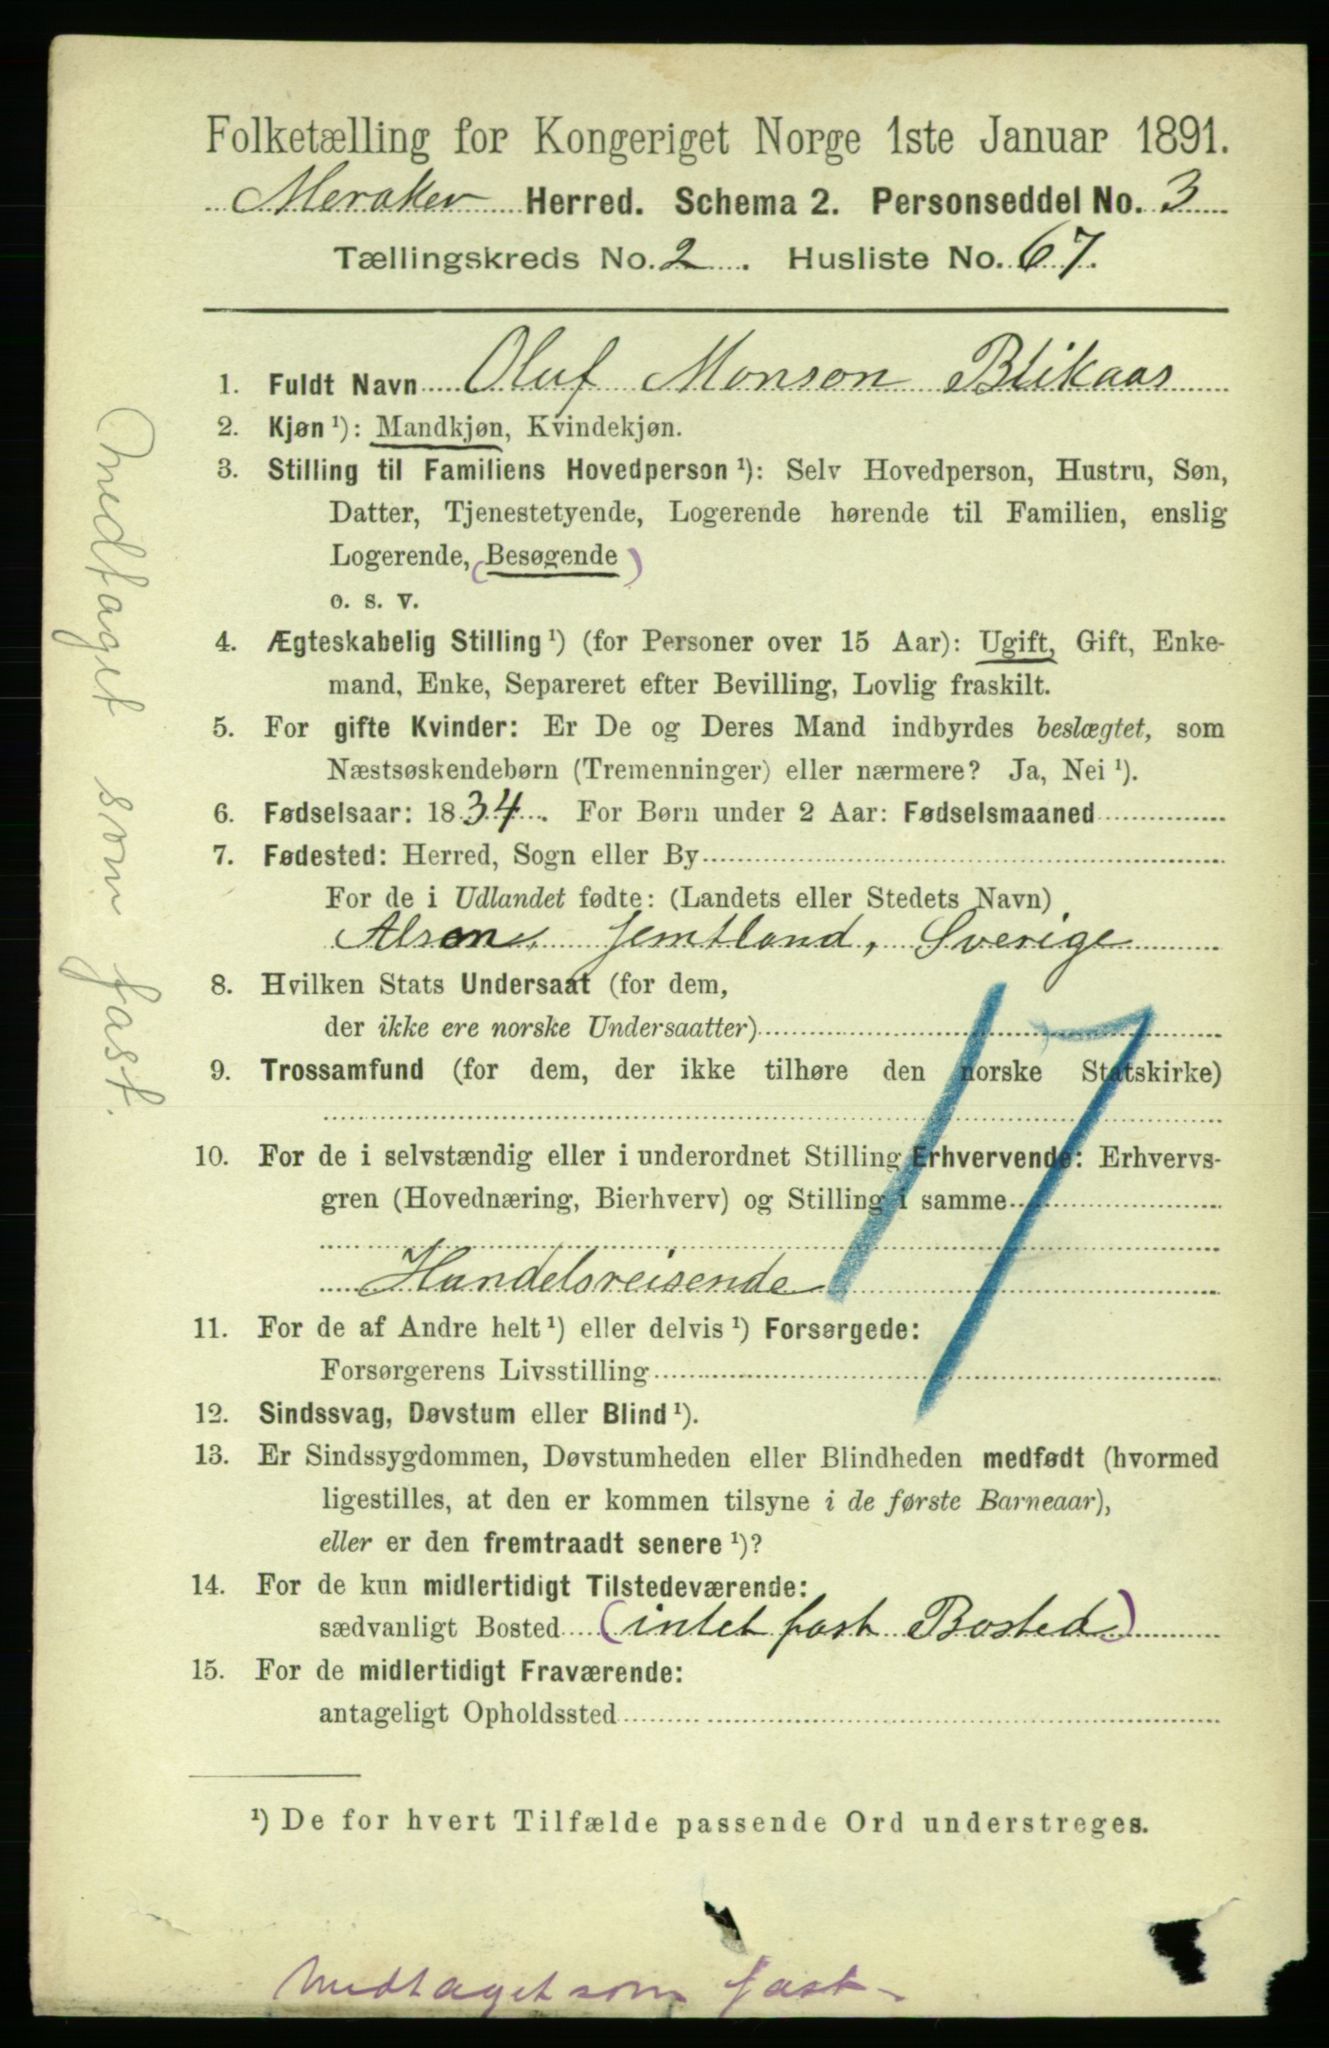 Folketælling for Kongeriget Norge 1ste Januar 1891.
Meraker Herred. Schema 2. Personseddel No. 3
Tællingskreds No. 2. Husliste No. 67.
1. Fuldt Navn Oluf Monson Blikaas
2. Kjøn ¹): Mandkjøn, Kvindekjøn.
3. Stilling til Familiens Hovedperson ¹): Selv Hovedperson, Hustru, Søn,
Datter, Tjenestetyende, Logerende hørende til Familien, enslig
Logerende, (Besøgende)
o. s. v.
4. Ægteskabelig Stilling ¹) (for Personer over 15 Aar): Ugift, Gift, Enke-
mand, Enke, Separeret efter Bevilling, Lovlig fraskilt.
5. For gifte Kvinder: Er De og Deres Mand indbyrdes beslægtet, som
Næstsøskendebørn (Tremenninger) eller nærmere? Ja, Nei ¹).
6. Fødselsaar: 1834. For Børn under 2 Aar: Fødselsmaaned
7. Fødested: Herred, Sogn eller By
For de i Udlandet fødte: (Landets eller Stedets Navn)
Alsen, Jemtland, Sverige
8. Hvilken Stats Undersaat (for dem,
der ikke ere norske Undersaatter)
9. Trossamfund (for dem, der ikke tilhøre den norske Statskirke)
17
10. For de i selvstændig eller i underordnet Stilling Erhvervende: Erhvervs-
gren (Hovednæring, Bierhverv) og Stilling i samme
Handelsreisende
11. For de af Andre helt ¹) eller delvis ¹) Forsørgede:
Forsørgerens Livsstilling
12. Sindssvag, Døvstum eller Blind ¹).
13. Er Sindssygdommen, Døvstumheden eller Blindheden medfødt (hvormed
ligestilles, at den er kommen tilsyne i de første Barneaar),
eller er den fremtraadt senere ¹)?
14. For de kun midlertidigt Tilstedeværende:
sædvanligt Bosted (intet fast Bosted)
15. For de midlertidigt Fraværende:
antageligt Opholdssted
¹) De for hvert Tilfælde passende Ord understreges.
Medtaget som fast
Medtaget som fast.